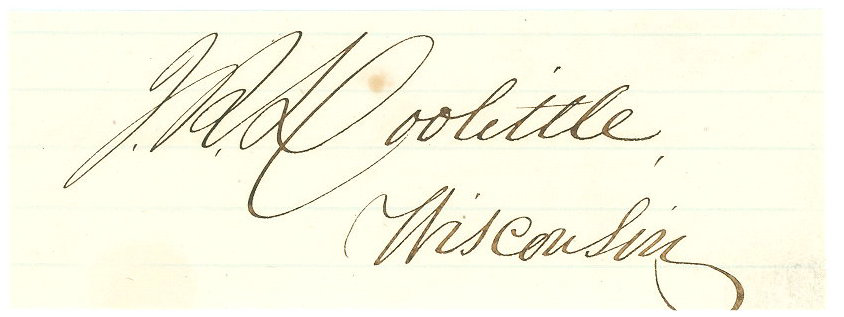 J. R. Doolittle,
Wisconsin